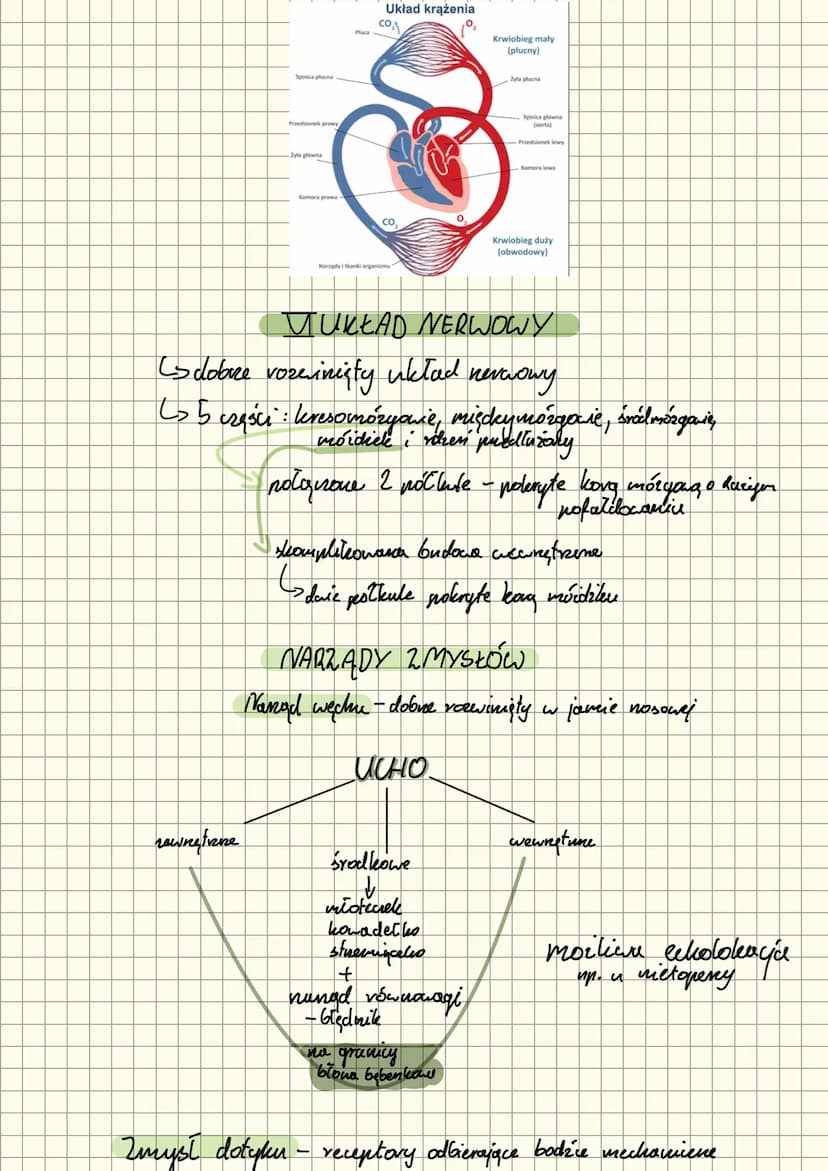 Układ krążenia
CO₂
O₂
Płuca
Krwiobieg mały
(płucny)
Tętnica płucna
Żyła płucna
Tętnica główna
(aorta)
Przedsionek prawy
Przedsionek lewy
Żyła główna
Komora lewa
Komora prawa
CO₂
O₂
Krwiobieg duży
(obwodowy)
Narządy i tkanki organizmu
VI UKŁAD NERWOWY
↳ dobrze rozwinięty układ nerwowy
↳ 5 części: kresomózgowie, międzymózgowie, śródmózgowie,
móżdżek i rdzeń przedłużony
połączone 2 półkule - pokryte korą mózgową o dużym
pofałdowaniu
skomplikowana budowa wewnętrzna
↳ dwie półkule pokryte korą móżdżku
NARZĄDY ZMYSŁÓW
Narząd węchu - dobrze rozwinięty w jamie nosowej
UCHO
zewnętrzne
środkowe
wewnętrzne
↓
młoteczek
kowadełko
strzemiączko
+
narząd równowagi
- błędnik
możliwa echolokacja
np. u nietoperzy
na granicy
błona bębenkowa
Zmysł dotyku - receptory odbierające bodźce mechaniczne